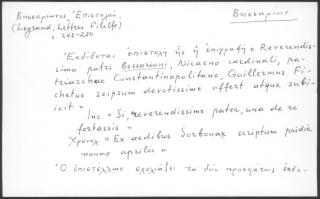 Βησσαρίωνος, Ἐπιστολή.
Βησσαρίων
(Legrand, Lettres Filelfe)
σ. 247-250
Ἐκδίδεται ἐπιστολὴ ἧς ἡ ἐπιγραφὴ « Reverendis-
simo patri Bessarioni, Nicaeno cardinali, pa-
triarchae Constantinopolitano, Guillermus Fi-
chetus seipsum devotissime offert atque subi-
icit. »
Inc. « Si, reverendissime pater, una de re
fortassis »
Χρονολ « Ex aedibus Sorbonae scriptum pridie
nonas aprilis »
Ὁ ἐπιστέλλων σχολιάζει τὰ δύο